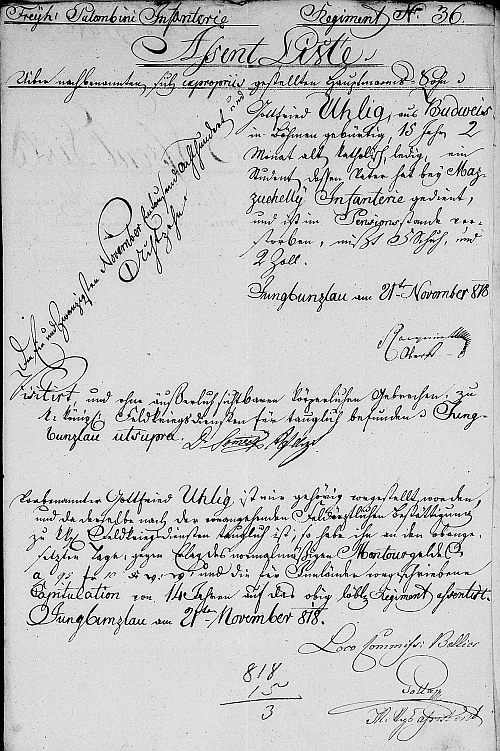 Freyh: Palombini Infanterie Regiment No 36.
Assent Liste
Ueber nachbenannten, sich ex propriis gestellten Hauptmanns Sohn
Gottfried Uhlig, aus Budweis
in Böhmen gebürtig, 15 Jahr, 2
Monat alt, katholisch, ledig, ein
Student, dessen Vater hat bey Maz-
zuchelly Infanterie gedient,
und ist im Pensionsstande ver-
storben, mißt 5 Schuh, und
2 Zoll.
Jungbunzlau am 21ten November 818
Den ein und zwanzigsten November Eintausend achthundert und
Achtzehn
Oberst
Visitirt, und ohne äußerlich sichtbaren körperlichen Gebrechen, zu
k: königl: Feldkriegsdiensten für tauglich befunden. Jung-
bunzlau ut supra.
Vorbenannter Gottfried Uhlig ist mir gehörig vorgestellt worden,
und da derselbe nach der vorangehenden Feldärztlichen Bestättigung
zu kk: Feldkriegsdiensten tauglich ist; so habe ihn an dem obange-
setzten Tage, gegen Erlag des normalmäßigen Montourgeldes
a 95 f 10 und die für Innländer vorgeschriebene
Capitulation von 14 Jahren auf das obig löbl: Regiment assentirt.
Jungbunzlau am 21ten November 818.
Loco Commissi:
818
15
3